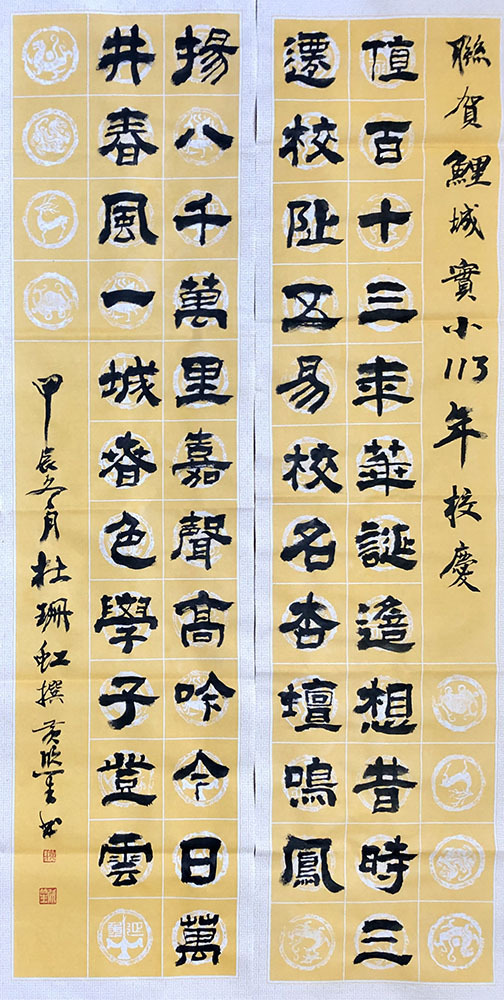 聯賀鯉城實小113年校慶
值百十三年華誕遙想昔時三
遷校阯五易校名杏壇鳴鳳
揚八千萬里嘉聲高吟今日萬
井春風一城春色學子登雲
甲辰冬月杜珊虹撰黃欣書